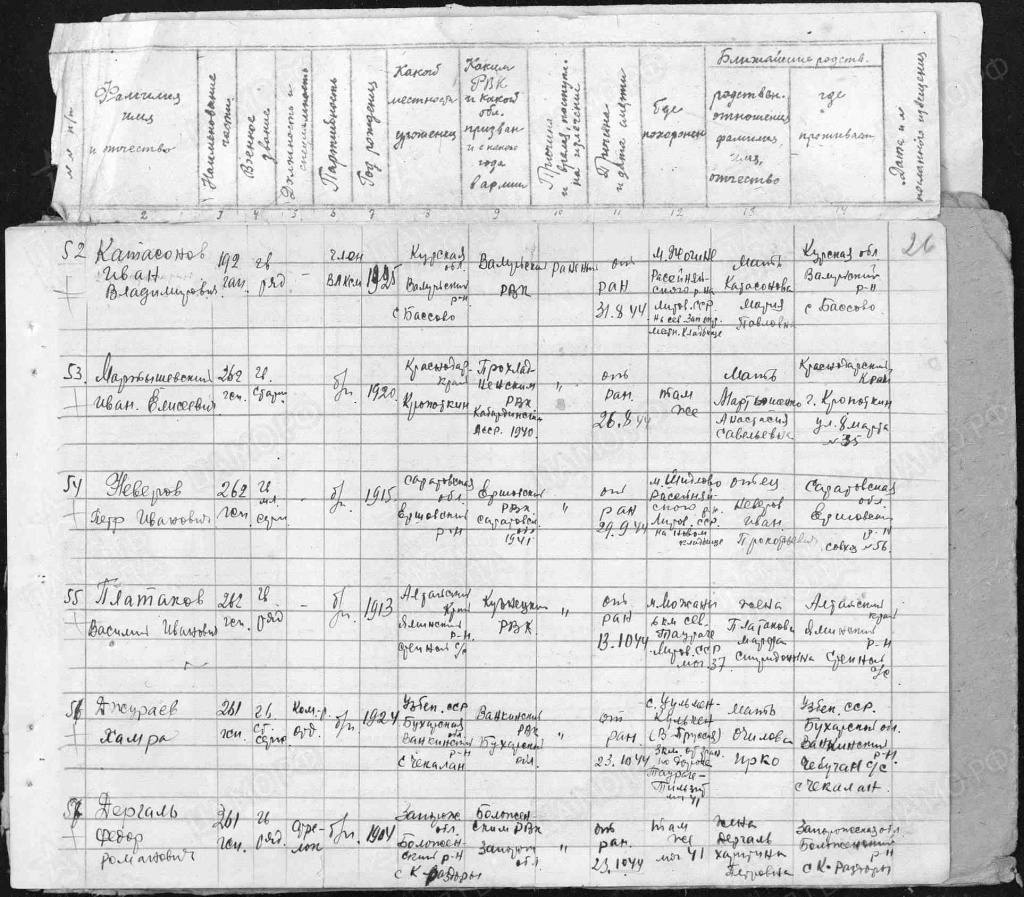 № п/п
Фамилия
имя
и отчество
Наименование
части
Военное
звание
Должность и
специальность
Партийность
Год рождения
Какой
местности
уроженец
Каким
РВК
и какой
обл.
призван
и с какого
года
в армии
Причина
и время, поступл.
на излечение
Причина
и дата смерти
Где
похоронен
Ближайшие родств.
родствен.
отношения
фамилия,
имя,
отчество
где
проживает
Дата и №
посланного извещения
2 3 4 5 6 7 8 9 10 11 12 13 14
26
52 Катасонов
Иван
Владимирович
192
гсп.
гв
ряд.
-
член
ВЛКСМ
1925
Курская
обл.
Валуйский
р-н
с Бассово
Валуйский
РВК
ранение
от
ран
31.8 44
Расейняй-
ского р-на
Литов. ССР
Мать
Катасонова
Мария
Павловн
Курская обл
Валуйский
р-н
с Бассово
53.
Иван Елисеевич
262
гсп.
гв.
б/п.
1920
Краснодар.
край
Кропоткин
Прохлад-
ненским
РВК
Кабардинской
Асср. 1940.
"
от
ран.
26.8 44
там
же
Мать
Мартыненко
Анастасия
Савельевна
Краснодарский
Край
г. Кропоткин
ул. 8 марта
№ 35
54 Неверов
Петр Иванович
262
гсп.
гв
мл.
серж.
-
б/п.
1915.
Саратовская
обл.
Ершовский
р-н
Ершовским
РВК
Саратовской
обл
1941.
"
от
ран
29.9 44
м. Шидлово
Расейняй-
ского р-н.
Литов. ССР.
на новом
кладбище
отец
Неверов
Иван
Прокофьевич
Саратовская
обл
Ершовский
р-н
совхоз №56.
55 Платаков
Василий Иванович
262
гсп.
гв
ряд
-
б/п.
1913
Алтайский
Край
р-н.
с/с
Кузнецким
РВК.
"
от
ран
13.10 44
6 км сев.
Таураге
Литов. ССР
мог. 37
жена
Платакова
Марфа
Спиридоновна
Алтайский
край
р-н
с/с
56 Джураев
Хамра
261
гсп.
гв.
ст.
серж.
Ком-р.
отд.
б/п.
1924
Узбек. ССР
Бухарская
обл
р-н
с Чекалан
РВК
Бухарской
обл.
"
от
ран.
23.10 44
(В. Пруссия)
3 км.
по дороге
Таураге-
Тильзит
мог 41
мать
Очилова
Узбек. ССР.
Бухарская обл.
р-н
с/с
с Чекалан.
57 Дергаль
Федор
Романович
261
гсп.
гв
ряд.
Стре-
лок
б/п.
1904
Запорож.
обл.
р-н
с К-Раздоры
РВК
Запорож.
обл
"
от
ран.
23.10 44
там
же
мог 41
жена
Дергаль
Петровна
Запорожская обл.
р-н
с К-Раздоры